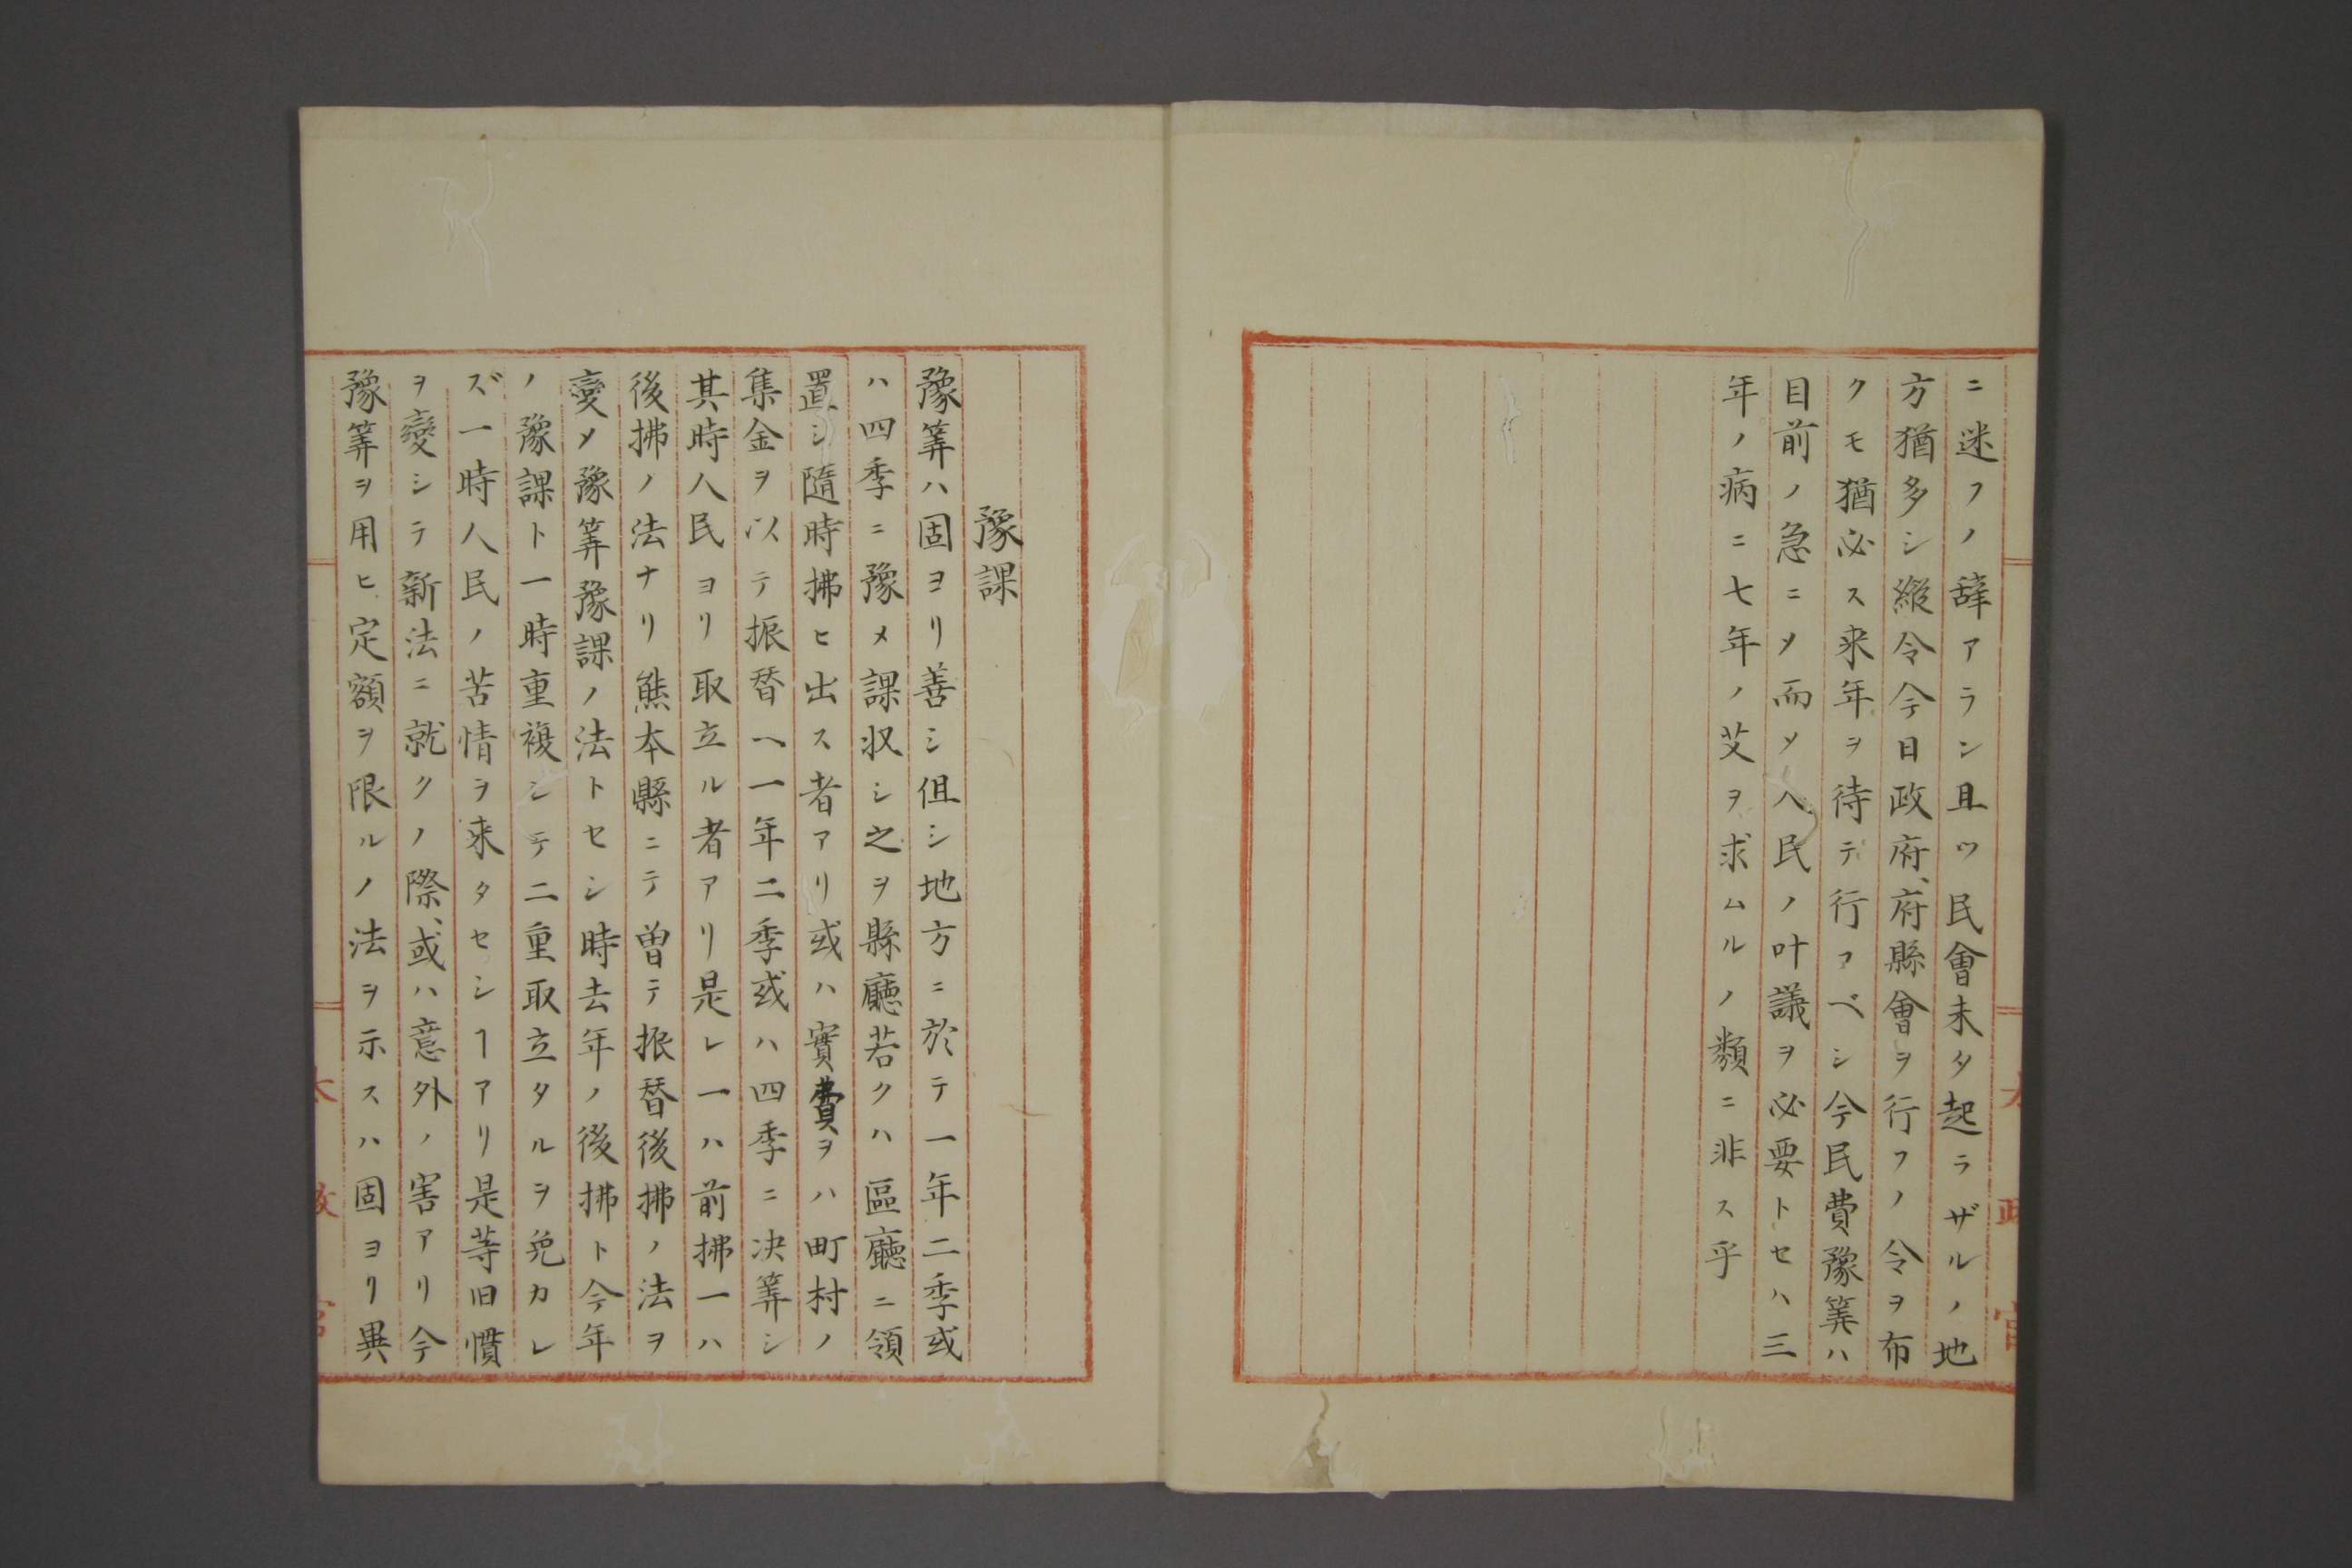 ニ迷フノ辞アラン且ツ民會未タ起ラザルノ地
方猶多シ縦令今日政府、府縣會ヲ行フノ令ヲ布
クモ猶必ス来年ヲ待テ行フベシ今民費豫筭ハ
目前ノ急ニメ而メ人民ノ叶議ヲ必要トセハ三
年ノ病ニ七年ノ艾ヲ求ムルノ類ニ非ス乎
豫課
豫筭ハ固ヨリ善シ但シ地方ニ於テ一年二季或
ハ四季ニ豫メ課収シ之ヲ縣廳若クハ區廳ニ領
置シ隨時拂ヒ出ス者アリ或ハ實費ヲハ町村ノ
集金ヲ以テ振替ヘ一年二季或ハ四季ニ决筭シ
其時人民ヨリ取立ル者アリ是レ一ハ前拂一ハ
後拂ノ法ナリ熊本縣ニテ曽テ振替後拂ノ法ヲ
變メ豫筭豫課ノ法トセシ時去年ノ後拂ト今年
ノ豫課ト一時重複シテ二重取立タルヲ免カレ
ズ一時人民ノ苦情ヲ来タセシヿアリ是等旧慣
ヲ變シテ新法ニ就クノ際、或ハ意外ノ害アリ今
豫筭ヲ用ヒ定額ヲ限ルノ法ヲ示スハ固ヨリ異
太政官